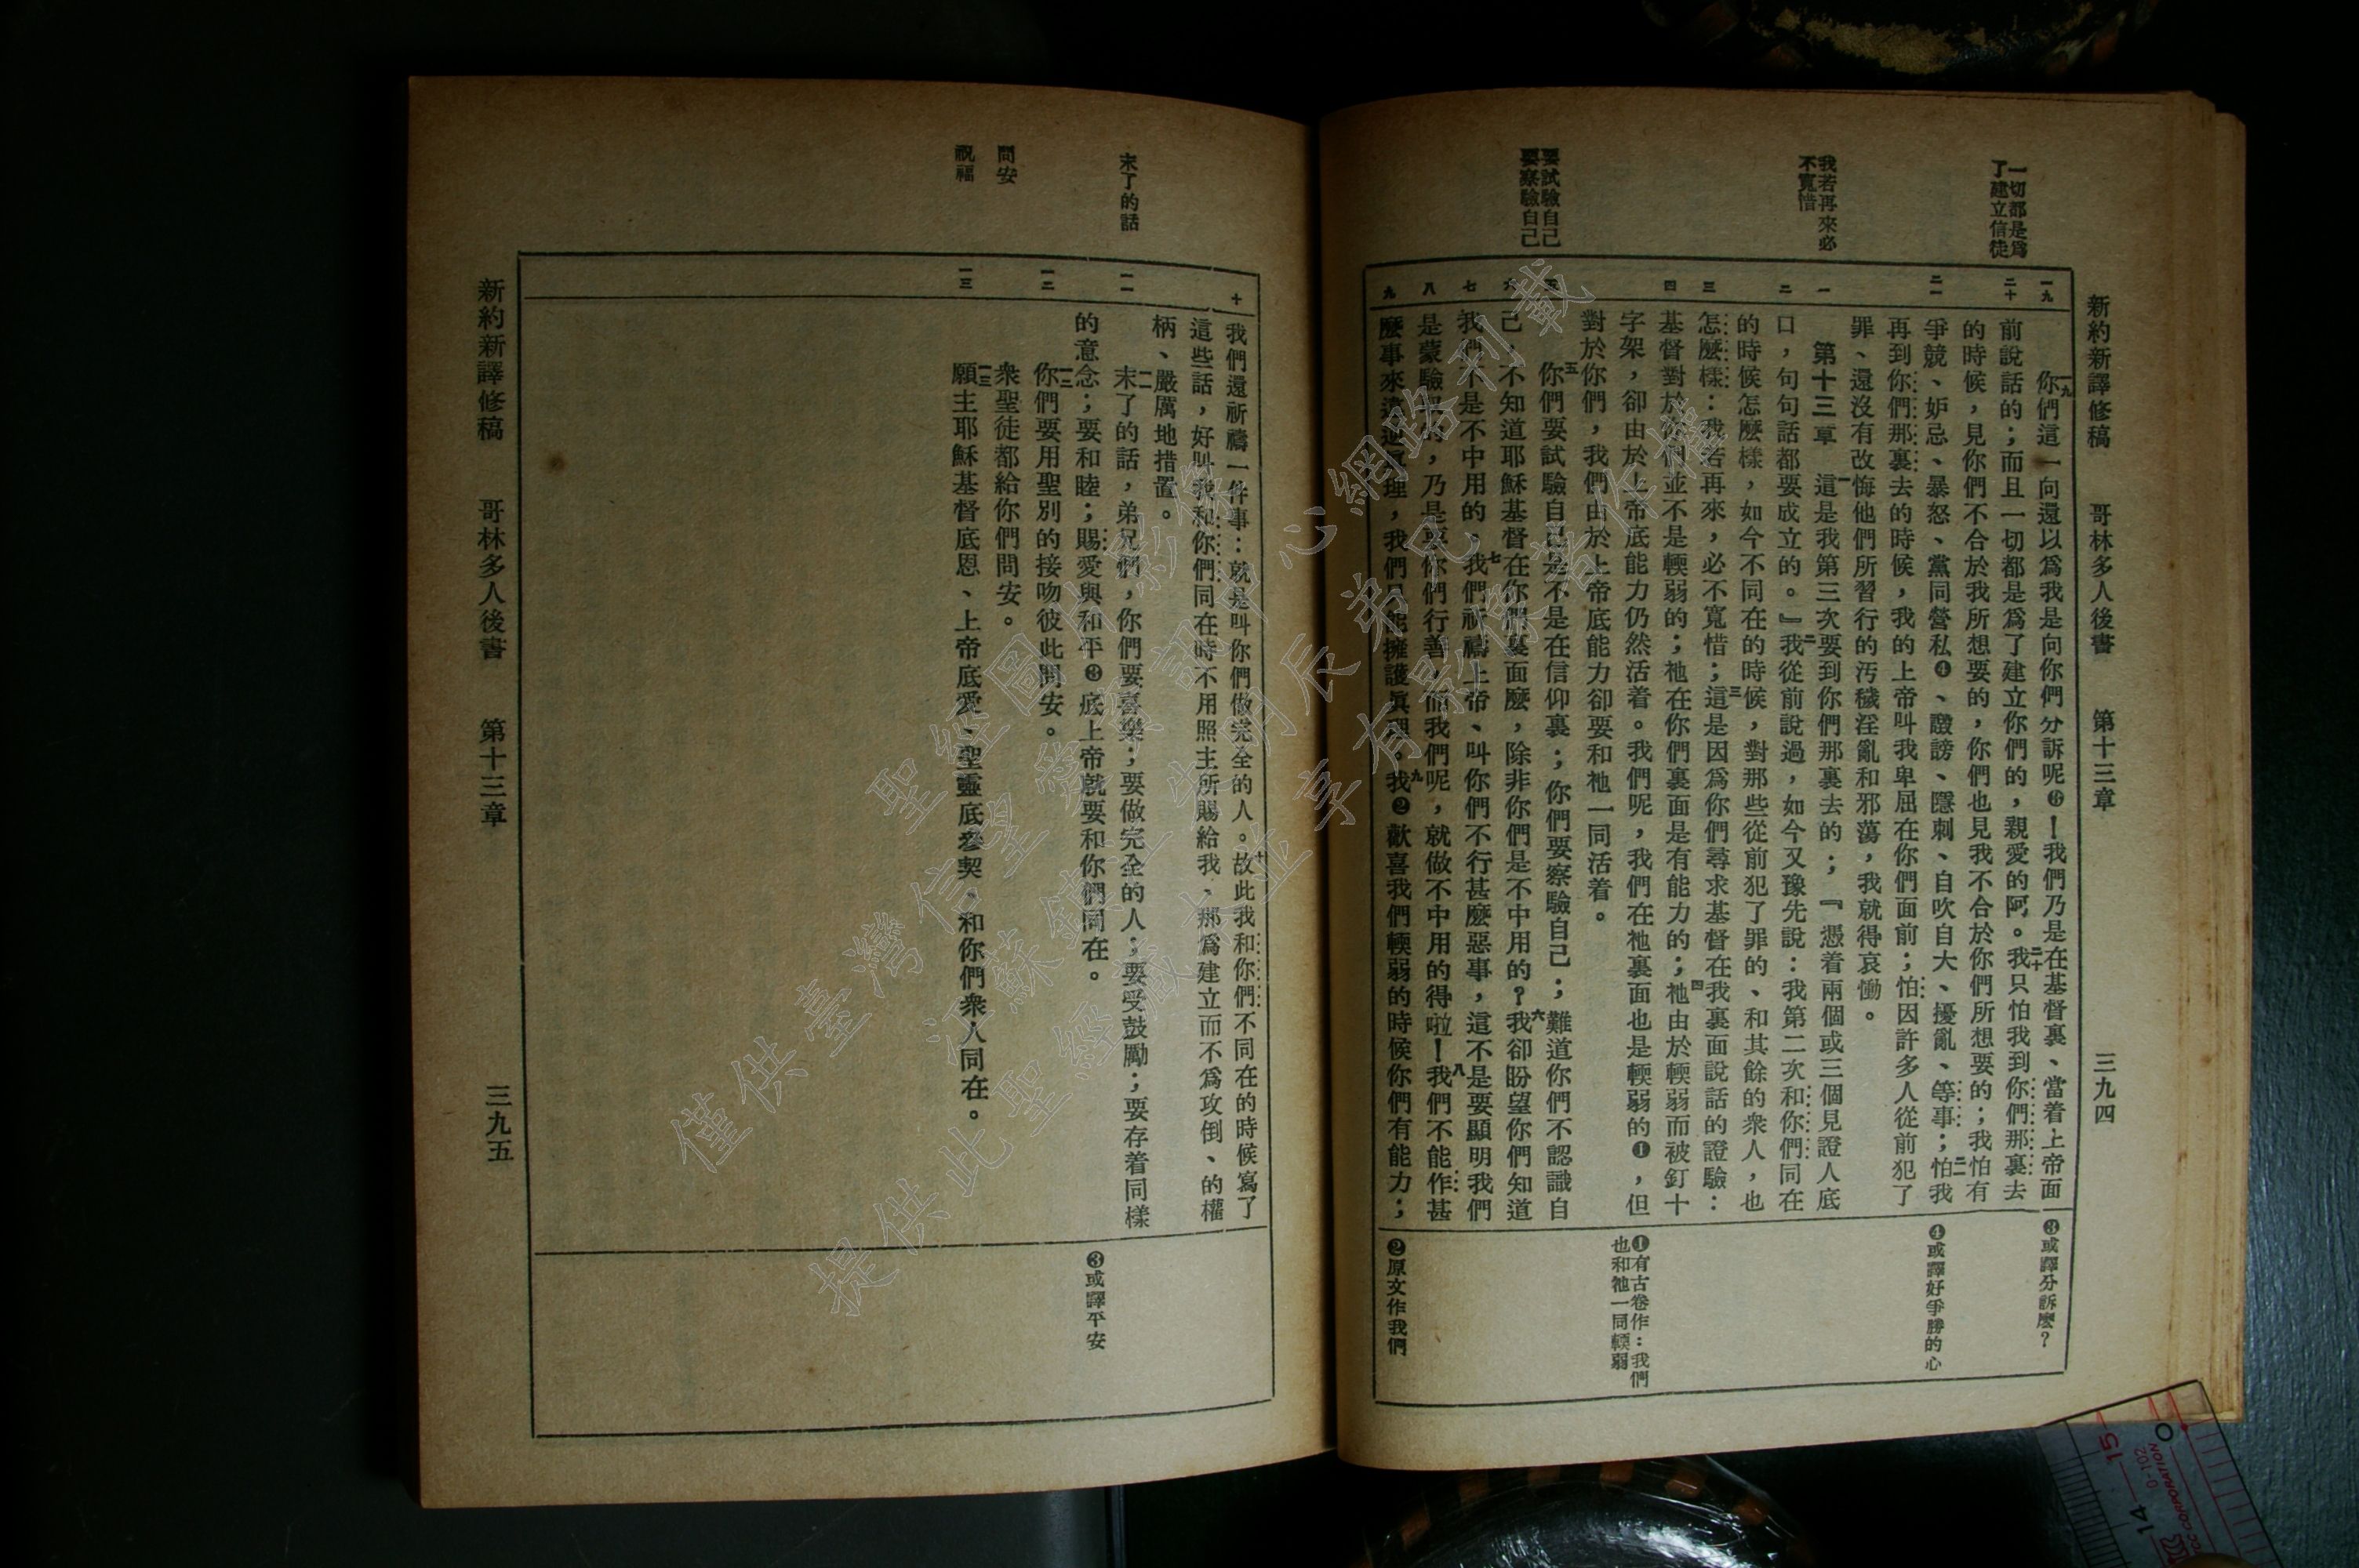 新約新譯修稿　哥林多人後書　第十三章　三九四
一切都是爲
了建立信徒
我若再來必
不寬惜
要試驗自己
要察驗自己
一九
二十
二一
一
二
三
四
五
六
七
八
九
一九你們這一向還以爲我是向你們分訴呢❸！我們乃是在基督裏、當着上帝面
前說話的；而且一切都是爲了建立你們的，親愛的阿。二十我只怕我到你們那裏去
的時候，見你們不合於我所想要的，你們也見我不合於你們所想要的；我怕有
爭競、妒忌、暴怒、黨同營私❹、譭謗、隱刺、自吹自大、擾亂、等事；二一怕我
再到你們那裏去的時候，我的上帝叫我卑屈在你們面前；怕因許多人從前犯了
罪、還沒有改悔他們所習行的汚穢淫亂和邪蕩，我就得哀慟。
第十三章　一這是我第三次要到你們那裏去的；『憑着兩個或三個見證人底
口，句句話都要成立的。』二我從前說過，如今又豫先說：我第二次和你們同在
的時候怎麼樣，如今不同在的時候，對那些從前犯了罪的、和其餘的衆人，也
怎麼樣：我若再來，必不寬惜；三這是因爲你們尋求基督在我裏面說話的證驗：
基督對於你們並不是輭弱的；祂在你們裏面是有能力的；四祂由於輭弱而被釘十
字架，卻由於上帝底能力仍然活着。我們呢，我們在祂裏面也是輭弱的❶，但
對於你們，我們由於上帝底能力卻要和祂一同活着。
五你們要試驗自己是不是在信仰裏；你們要察驗自己；難道你們不認識自
己，不知道耶穌基督在你們裏面麼，除非你們是不中用的？六我卻盼望你們知道
我們不是不中用的、七我們祈禱上帝、叫你們不行甚麼惡事，這不是要顯明我們
是蒙驗中的，乃是要你們行善，而我們呢，就做不中用的得啦！八我們不能作甚
麼事來違逆眞理，我們只能擁護眞理。九我❷歡喜我們輭弱的時候你們有能力；
❸或譯分訴麽？
❹或譯好爭勝的心
❶有古卷作：我們
也和祂一同輭弱
❷原文作我們
末了的話
問安
祝福
十
一一
一二
一三
我們還祈禱一件事：就是叫你們做完全的人。十故此我和你們不同在的時候寫了
這些話，好叫我和你們同在時不用照主所賜給我、那爲建立而不爲攻倒、的權
柄、嚴厲地措置。
一一末了的話，弟兄們，你們要喜樂；要做完全的人；要受鼓勵；要存着同樣
的意念；要和睦；賜愛與和平❸底上帝就要和你們同在。
一二你們要用聖別的接吻彼此問安。
衆聖徒都給你們問安。
一三願主耶穌基督底恩、上帝底愛、聖靈底參契、和你們衆人同在。
❸或譯平安
新約新譯修稿　哥林多人後書　第十三章　三九五